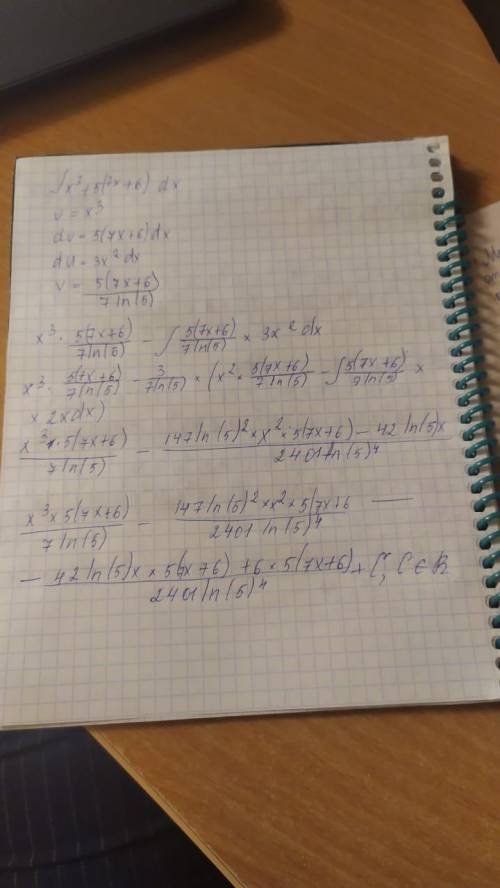 ∫x³ × 5(7x+6) dx
u = x³
dv = 5(7x+6)dx
du = 3x² dx
v = 5(7x+6) / 7ln(5)
x³ · 5(7x+6) / 7ln(5) − ∫ 5(7x+6) / 7ln(5) × 3x² dx
x³ · 5(7x+6) / 7ln(5) − 3 / 7ln(5) × (x² × 5(7x+6) / 7ln(5) − ∫ 5(7x+6) / 7ln(5) ×
× 2x dx)
x³ × 5(7x+6) / 7ln(5) − 147ln(5)² × x² × 5(7x+6) − 42ln(5)x / 2401ln(5)⁴
x³ × 5(7x+6) / 7ln(5) − 147ln(5)² × x² × 5(7x+6 / 2401ln(5)⁴ —
− 42ln(5)x × 5(7x+6) + 6 × 5(7x+6) / 2401ln(5)⁴ + C, C ∈ R